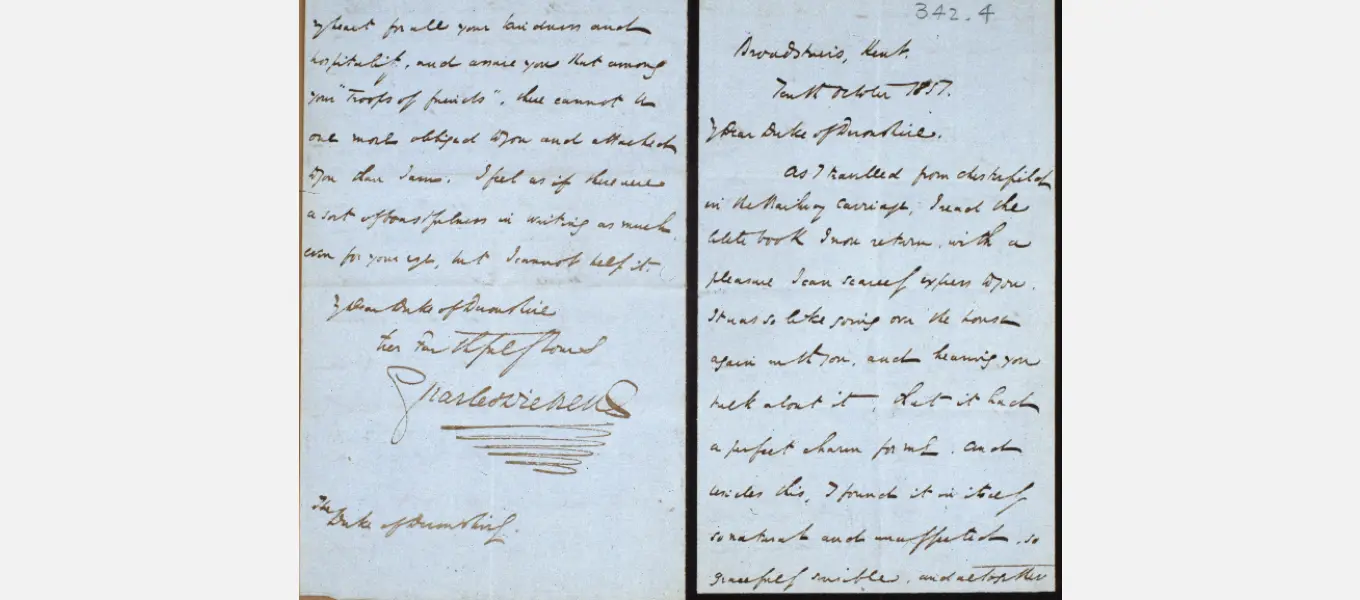 my heart for all your kindness and
hospitality, and assure you that among
your "troops of friends", there cannot be
one more obliged to you and attached
to you than I am. I feel as if there were
a sort of boastfulness in writing as much,
even for your eye, but I cannot help it.
My Dear Duke of Devonshire
Ever Faithfully Yours
Charles Dickens
The
Duke of Devonshire.
342.4
Broadstairs, Kent.
Tenth October 1851.
My Dear Duke of Devonshire.
As I travelled from Chesterfield
in the Railway Carriage, I read the
little book I now return, with a
pleasure I can scarcely express to you.
It was so like going over the house
again with you, and hearing you
talk about it, that it had
a perfect charm for me. And
besides this, I found it in itself
so natural and unaffected, so
gracefully sensible, and altogether